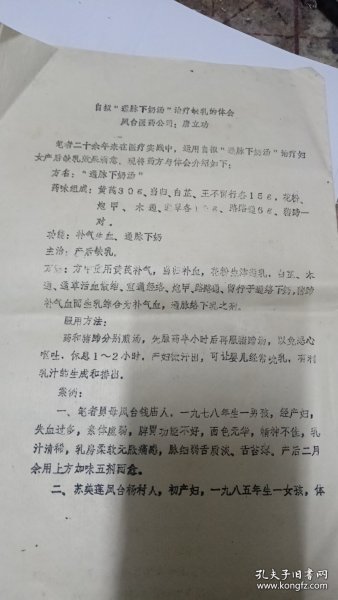 自拟“通脉下奶汤”治疗缺乳的体会
凤台医药公司:唐立功
笔者二十余年来在医疗实践中,运用自拟“通脉下奶汤”治疗妇
女产后缺乳效果满意,现将药方与体会介绍如下:
方名:“通脉下奶汤”
药味组成:黄芪30g、当归、白芷、王不留行各15g,花粉、
炮甲、木通、通草各10g、路路通5g、猪蹄一
对。
功能:补气生血、通脉下奶
主治:产后缺乳。
方中重用黄芪补气,当归补血,花粉生津
通草
补气血而生乳综合为补气血,通脉络下乳之剂。
服用方法:
药和猪蹄分别煎汤,先服药半小时后再服猪蹄汤,以免恶心
呕吐,休息1~2小时,产妇微汗出,可让婴儿经常吮乳,有利
乳汁的生成和排出。
案例:
一、笔者舅母凤台钱庙人,一九七八年生一男孩,经产妇,
失血过多,素体虚弱,脾胃功能不好,面色无华,精神不佳,乳
汁清稀,乳房柔软无胀痛感,脉细弱舌质淡、舌苔薄、产后二月
余用上方加味五剂而愈。
二、苏英莲凤台杨村人,初产妇,一九八五年生一女孩,体
孔夫子旧书网